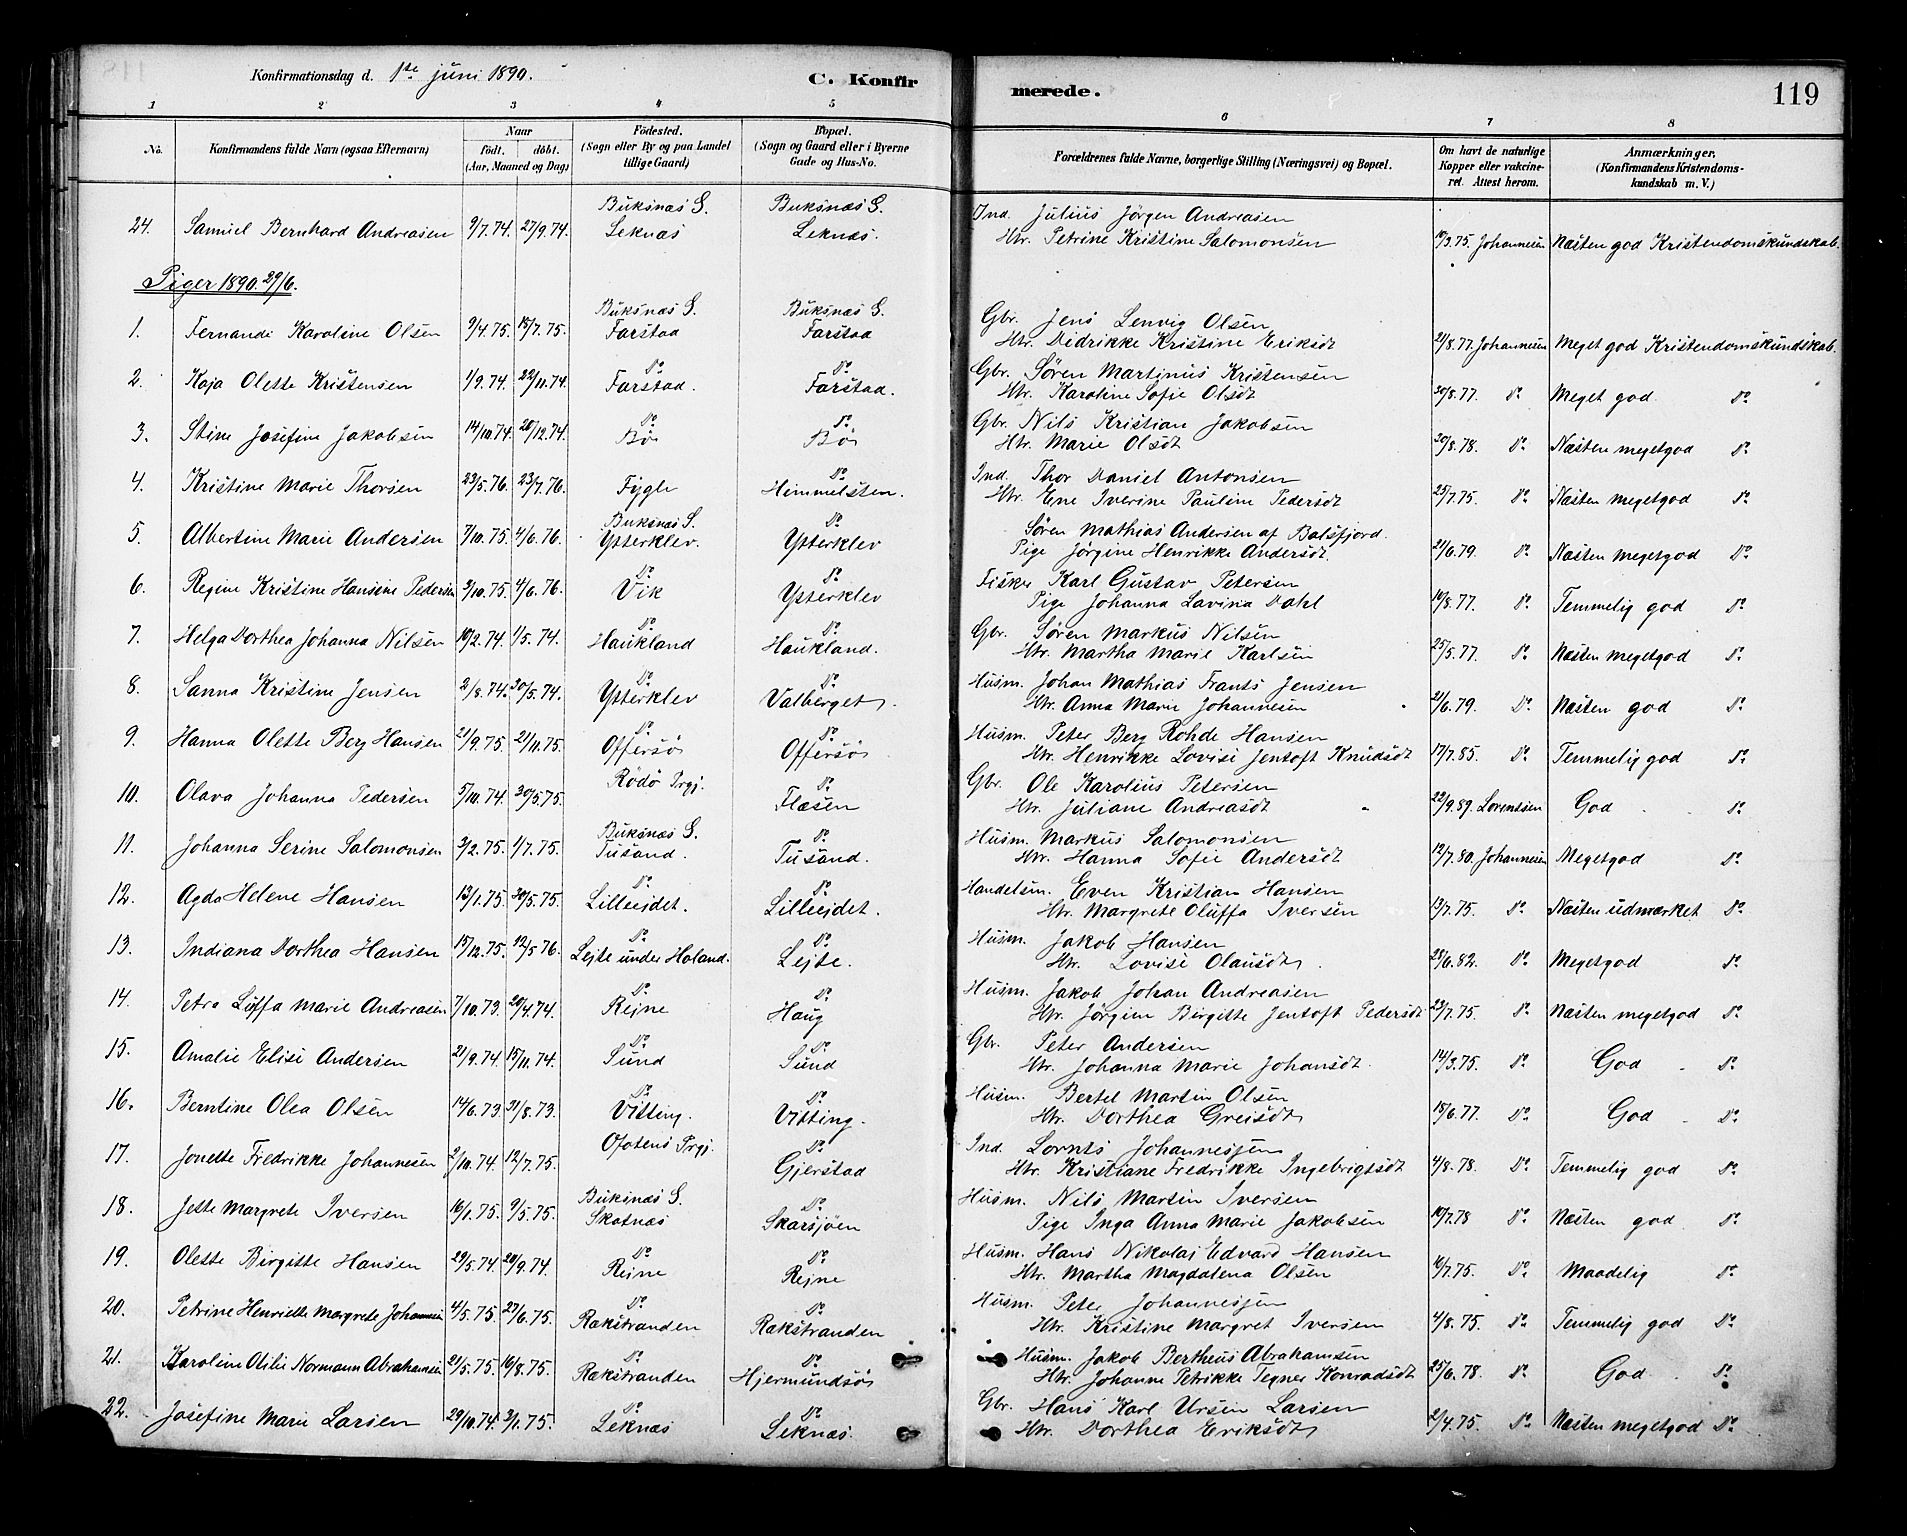 Konfirmationsdag d. 1ste juni 1890.
C. Konfirmerede.
119
1 2 3 4 5 6 7 8
No. Konfirmandens fulde Navn (ogsaa Efternavn) Naar født, døbt. (Aar, Maaned og Dag) Fødested. (Sogn eller By og paa Landet tillige Gaard) Bopæl. (Sogn og Gaard eller i Byerne Gade og Hus-No. Forældrenes fulde Navne, borgerlige Stilling (Næringsvei) og Bopæl. Om havt de naturlige Kopper eller vakcineret. Attest herom. Anmærkninger. (Konfirmandens Kristendomskundskab m. V.)
24. Samuel Bernhard Andreasen 9/7.74. 27/9.74. Buksnæs S. Leknæs Buksnæs S. Leknæs. Ind. Julius Jørgen Andreasen
Htr. Petrine Kristine Salomonsen 19/3.75. Johannesen Næsten god Kristendomskundskab.
Piger 1890. 29/6.
1. Fernande Karoline Olsen 9/4.75. 18/7.75. Buksnæs S. Farstad Buksnæs S. Farstad Gbr. Jens Lenvig Olsen
Htr. Didrikke Kristine Eriksdt 21/8.77. Johannesen Meget god Kristendomskundskab.
2. Kaja Olette Kristensen 1/9.74. 22/11.74. Do Farstad. Do Farstad. Gbr. Søren Martinus Kristensen
Htr. Karoline Sofie Olsdt 30/8.77. Do Meget god Do
3. Stine Josefine Jakobsen 14/10.74. 20/12.74. Do Bø Do Bø Gbr. Nils Kristian Jakobsen
Htr. Marie Olsdt 30/8.78. Do Næsten megetgod Do
4. Kristine Marie Thorsen 23/5.76. 23/7.76. Fygle Do Himmelsten. Ind. Thor Daniel Antonsen
Htr. Ene Iverine Pauline Pedersdt 25/7.75. Do Næsten megetgod Do
5. Albertine Marie Andersen 7/10.75. 4/6.76. Buksnæs S. Ysterklev. Do Ysterklev Søren Mathias Andersen af Balsfjord.
Pige Jørgine Henrikke Andersdt. 21/6.79. Do Næsten megetgod Do
6. Regine Kristine Hansine Pedersen 3/10.75. 4/6.76. Do Vik Do Ysterklev Fisker Karl Gustav Petersen
Pige Johanna Lavina Dahl 10/8.77. Do Temmelig god Do
7. Helga Dorthea Johanna Nilsen 10/2.74. 1/5.74. Do Haukland Do Haukland. Gbr. Søren Markus Nilsen
Htr. Martha Marie Karlsen 25/5.77. Do Næsten megetgod Do
8. Sanna Kristine Jensen 2/8.74. 30/5.74. Do Ysterklev Do Valberget. Husm. Johan Mathias Frants Jensen
Htr. Anna Marie Johannesen 21/6.79. Do Næsten god Do
9. Hanna Olette Berg Hansen 21/9.75. 21/11.75. Do Offersø Do Offersø Husm. Peter Berg Rohde Hansen
Htr. Henrikke Lovise Jentoft Knudsdt 17/7.85. Do Temmelig god Do
10. Olava Johanna Pedersen 5/10.74. 30/5.75. Rødø Prgj. Do Flæsen Gbr. Ole Karolius Petersen
Htr. Juliane Andreasdt 22/9.89. Lorentsen God Do
11. Johanna Serine Salomonsen 3/2.75. 1/7.75. Buksnæs S. Tusand. Do Tusand. Husm. Markus Salomonsen
Htr. Hanna Sofie Andersdt 12/7.80. Johannesen Megetgod Do
12. Agda Helene Hansen 13/1.75. 30/5.75. Do Lilleejdet. Do Lilleejdet. Handelsm. Even Kristian Hansen
Htr. Margrete Oluffa Iversen 13/7.75. Do Næsten udmærket Do
13. Indiana Dorthea Hansen 15/12.75. 12/5.76. Do Lejte under Holand. Do Lejte. Husm. Jakob Hansen
Htr. Lovise Olausdt. 23/6.82. Do Megetgod Do
14. Petra Luffa Marie Andreasen 7/10.73. 20/4.74. Do Rejne Do Haug Husm. Jakob Johan Andreasen
Htr. Jørgien Birgitte Jentoft Pedersdt 23/7.75. Do Næsten megetgod Do
15. Amalie Elise Andersen 21/9.74. 15/11.74. Do Sund Do Sund Gbr. Peter Andersen
Htr. Johanna Marie Johansdt. 14/3.75. Do God Do
16. Berntine Olea Olsen 14/6.73. 31/8.73. Do Vitting. Do Vitting. Husm. Bertel Martin Olsen
Htr. Dorthea Greisdt 15/6.77. Do God Do
17. Jonette Fredrikke Johannesen 2/10.74. 12/7.75. Ofotens Prgj. Do Gjerstad Ind. Lornts Johannesjen
Htr. Kristiane Fredrikke Ingebrigtsdt 4/8.78. Do Temmelig god Do
18. Jette Margrete Iversen 16/1.75. 9/5.75. Buksnæs S. Skotnæs Do Skarsjøen Husm. Nils Martin Iversen
Pige Inga Anna Marie Jakobsen 10/7.78 Do Næsten god. Do
19. Olette Birgitte Hansen 29/5.74. 20/9.74. Do Rejne Do Rejne Husm. Hans Nikolai Edvard Hansen
Htr. Martha Magdalena Olsen 16/7.75. Do Maadelig Do
20. Petrine Henriette Margrete Johannesen 4/5.75. 27/6.75. Do Rækstranden Do Rækstranden Husm. Peter Johannesjen
Htr. Kristine Margret Iversen 4/8.75. Do Temmelig god Do
21. Karoline Otilie Normann Abrahamsen 21/5.75. 16/8.75. Do Rækstranden Do Hjermundsø Husm. Jakob Bertheus Abrahamsen
Htr. Johanne Petrikke Tegner Konradsdt 25/6.78. Do God Do
22. Josefine Marie Larsen 29/10.74. 3/1.75. Do Leknæs Do Leknæs. Gbr. Hans Karl Ursin Larsen
Htr. Dorthea Eriksdt 2/4.75. Do Næsten megetgod Do